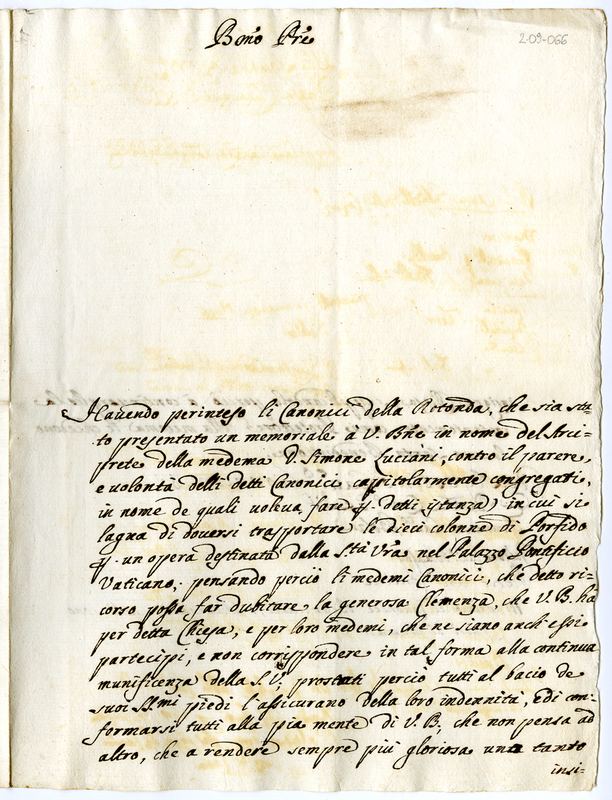 Bmo Pre
2-09-066
Havendo perinteso li Canonici della Rotonda, che sia sta=
to presentato un memoriale à V. Bne in nome del Arci=
prete della medema D. Simone Luciani, contro il parere,
e volontà delli detti Canonici capitolarmente congregati,
in nome de quali voleva fare p. detti istanza) in cui si
lagna di doversi trasportare le dieci colonne di Porfido
p. un opera destinata dalla Sta Vra nel Palazzo Pontificio
Vaticano; pensando perciò li medemi Canonici, che detto ri=
corso possa far dubitare la generosa Clemenza, che V. B. ha
per detta Chiesa, e per loro medemi, che ne siano anch'essi
partecipi, e non corrispondere in tal forma alla continua
munificenza della S. V., prostrati perciò tutti al bacio de
suoi SSmi piedi l'assicurano della loro indennità, e di con=
formarsi tutti alla pia mente di V. B., che non pensa ad
altro, che a rendere sempre più gloriosa una tanto
insi=